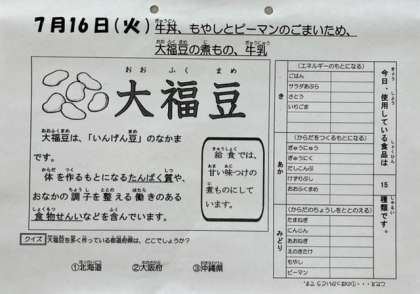 7月16日(火) 牛丼、もやしとピーマンのごまいため、
大福豆の煮もの、牛乳
おおふくまめ
大福豆
大福豆は、「いんげん豆」のなかま
です。
体を作るもとになるたんぱく質や、
おなかの調子を整える働きのある
食物せんいなどを含んでいます。
給食では、
甘い味つけの
煮ものにして
います。
クイズ 大福豆を多く作っている都道府県は、どこでしょうか？
①北海道 ②大阪府 ③沖縄県
今日、使用している食品は 15 種類です。
き
(エネルギーのもとになる)
ごはん
サラダあぶら
さとう
いちごま
あか
(からだをつくるもとになる)
ぎゅうにゅう
ぎゅうにく
だしこんぶ
けずりぶし
おおふくまめ
みどり
(からだのちょうしをととのえる)
たまねぎ
にんじん
あおねぎ
えのきたけ
もやし
ピーマン